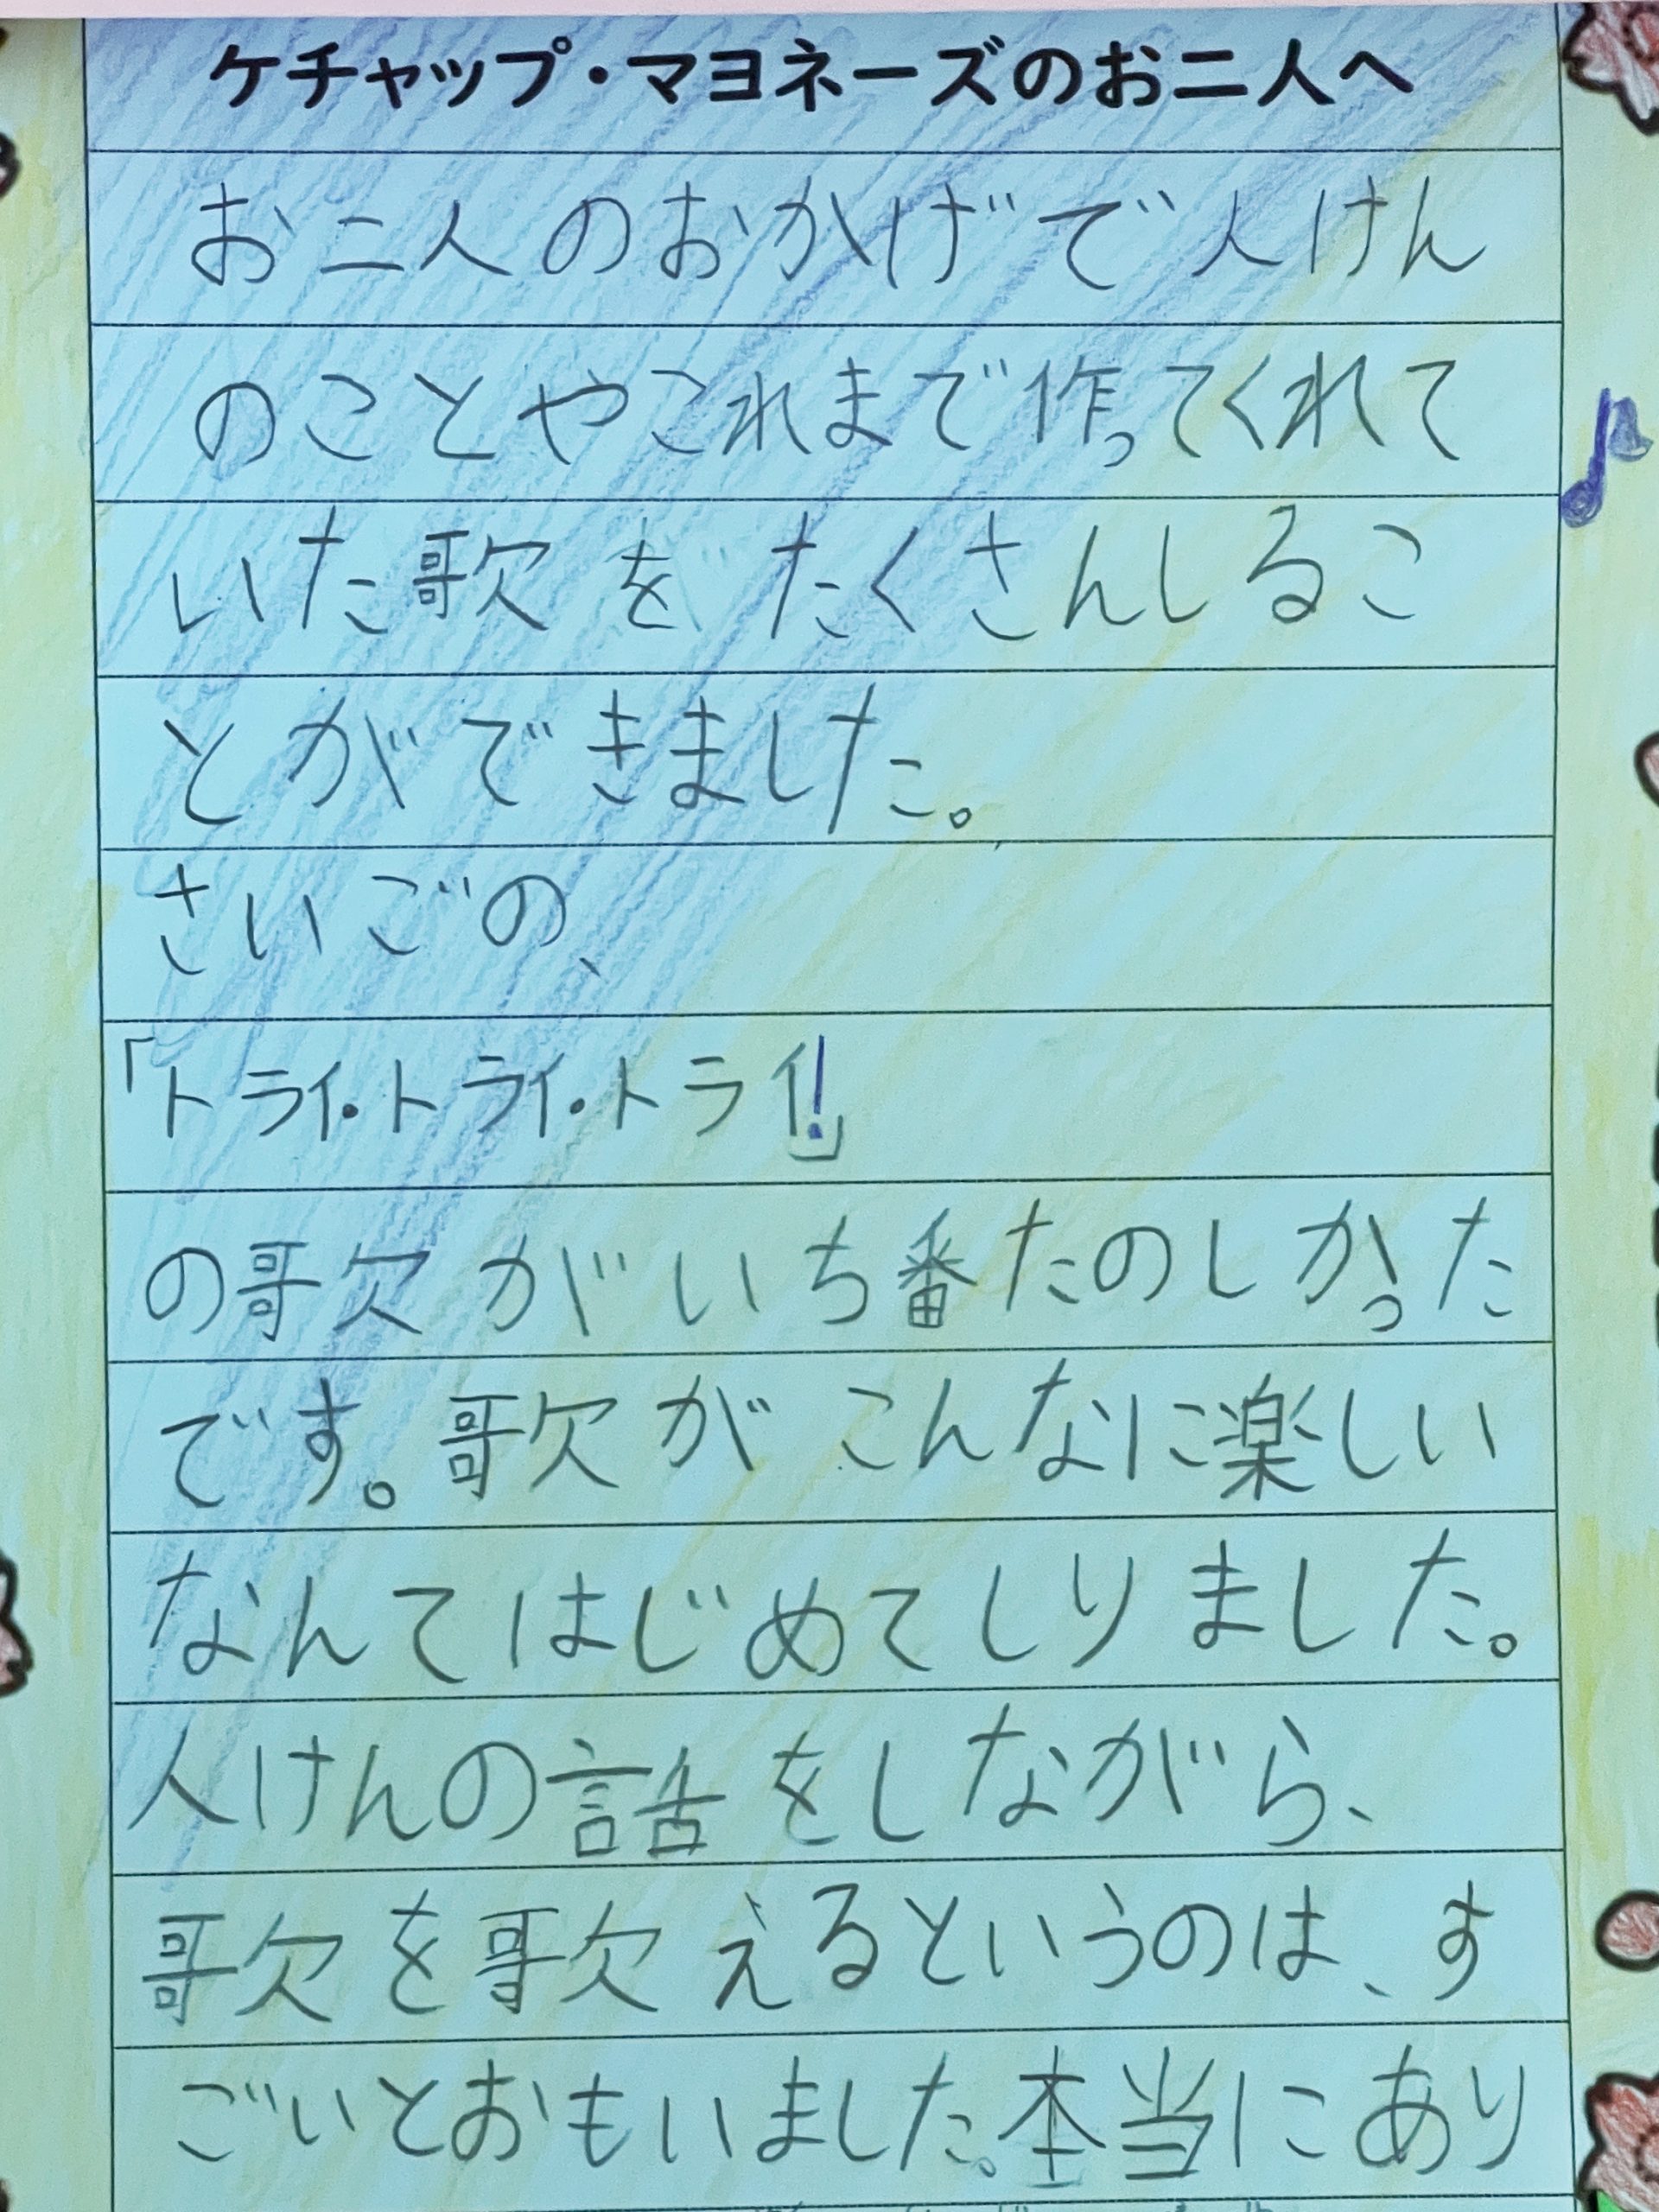 ケチャップ・マヨネーズのお二人へ
お二人のおかげで人けん
のことやこれまで作ってくれて
いた歌をたくさんしるこ
とができました。
さいごの、
「トライ・トライ・トライ!」
の歌がいち番たのしかった
です。歌がこんなに楽しい
なんてはじめてしりました。
人けんの話をしながら、
歌を歌えるというのは、す
ごいとおもいました。本当にあり